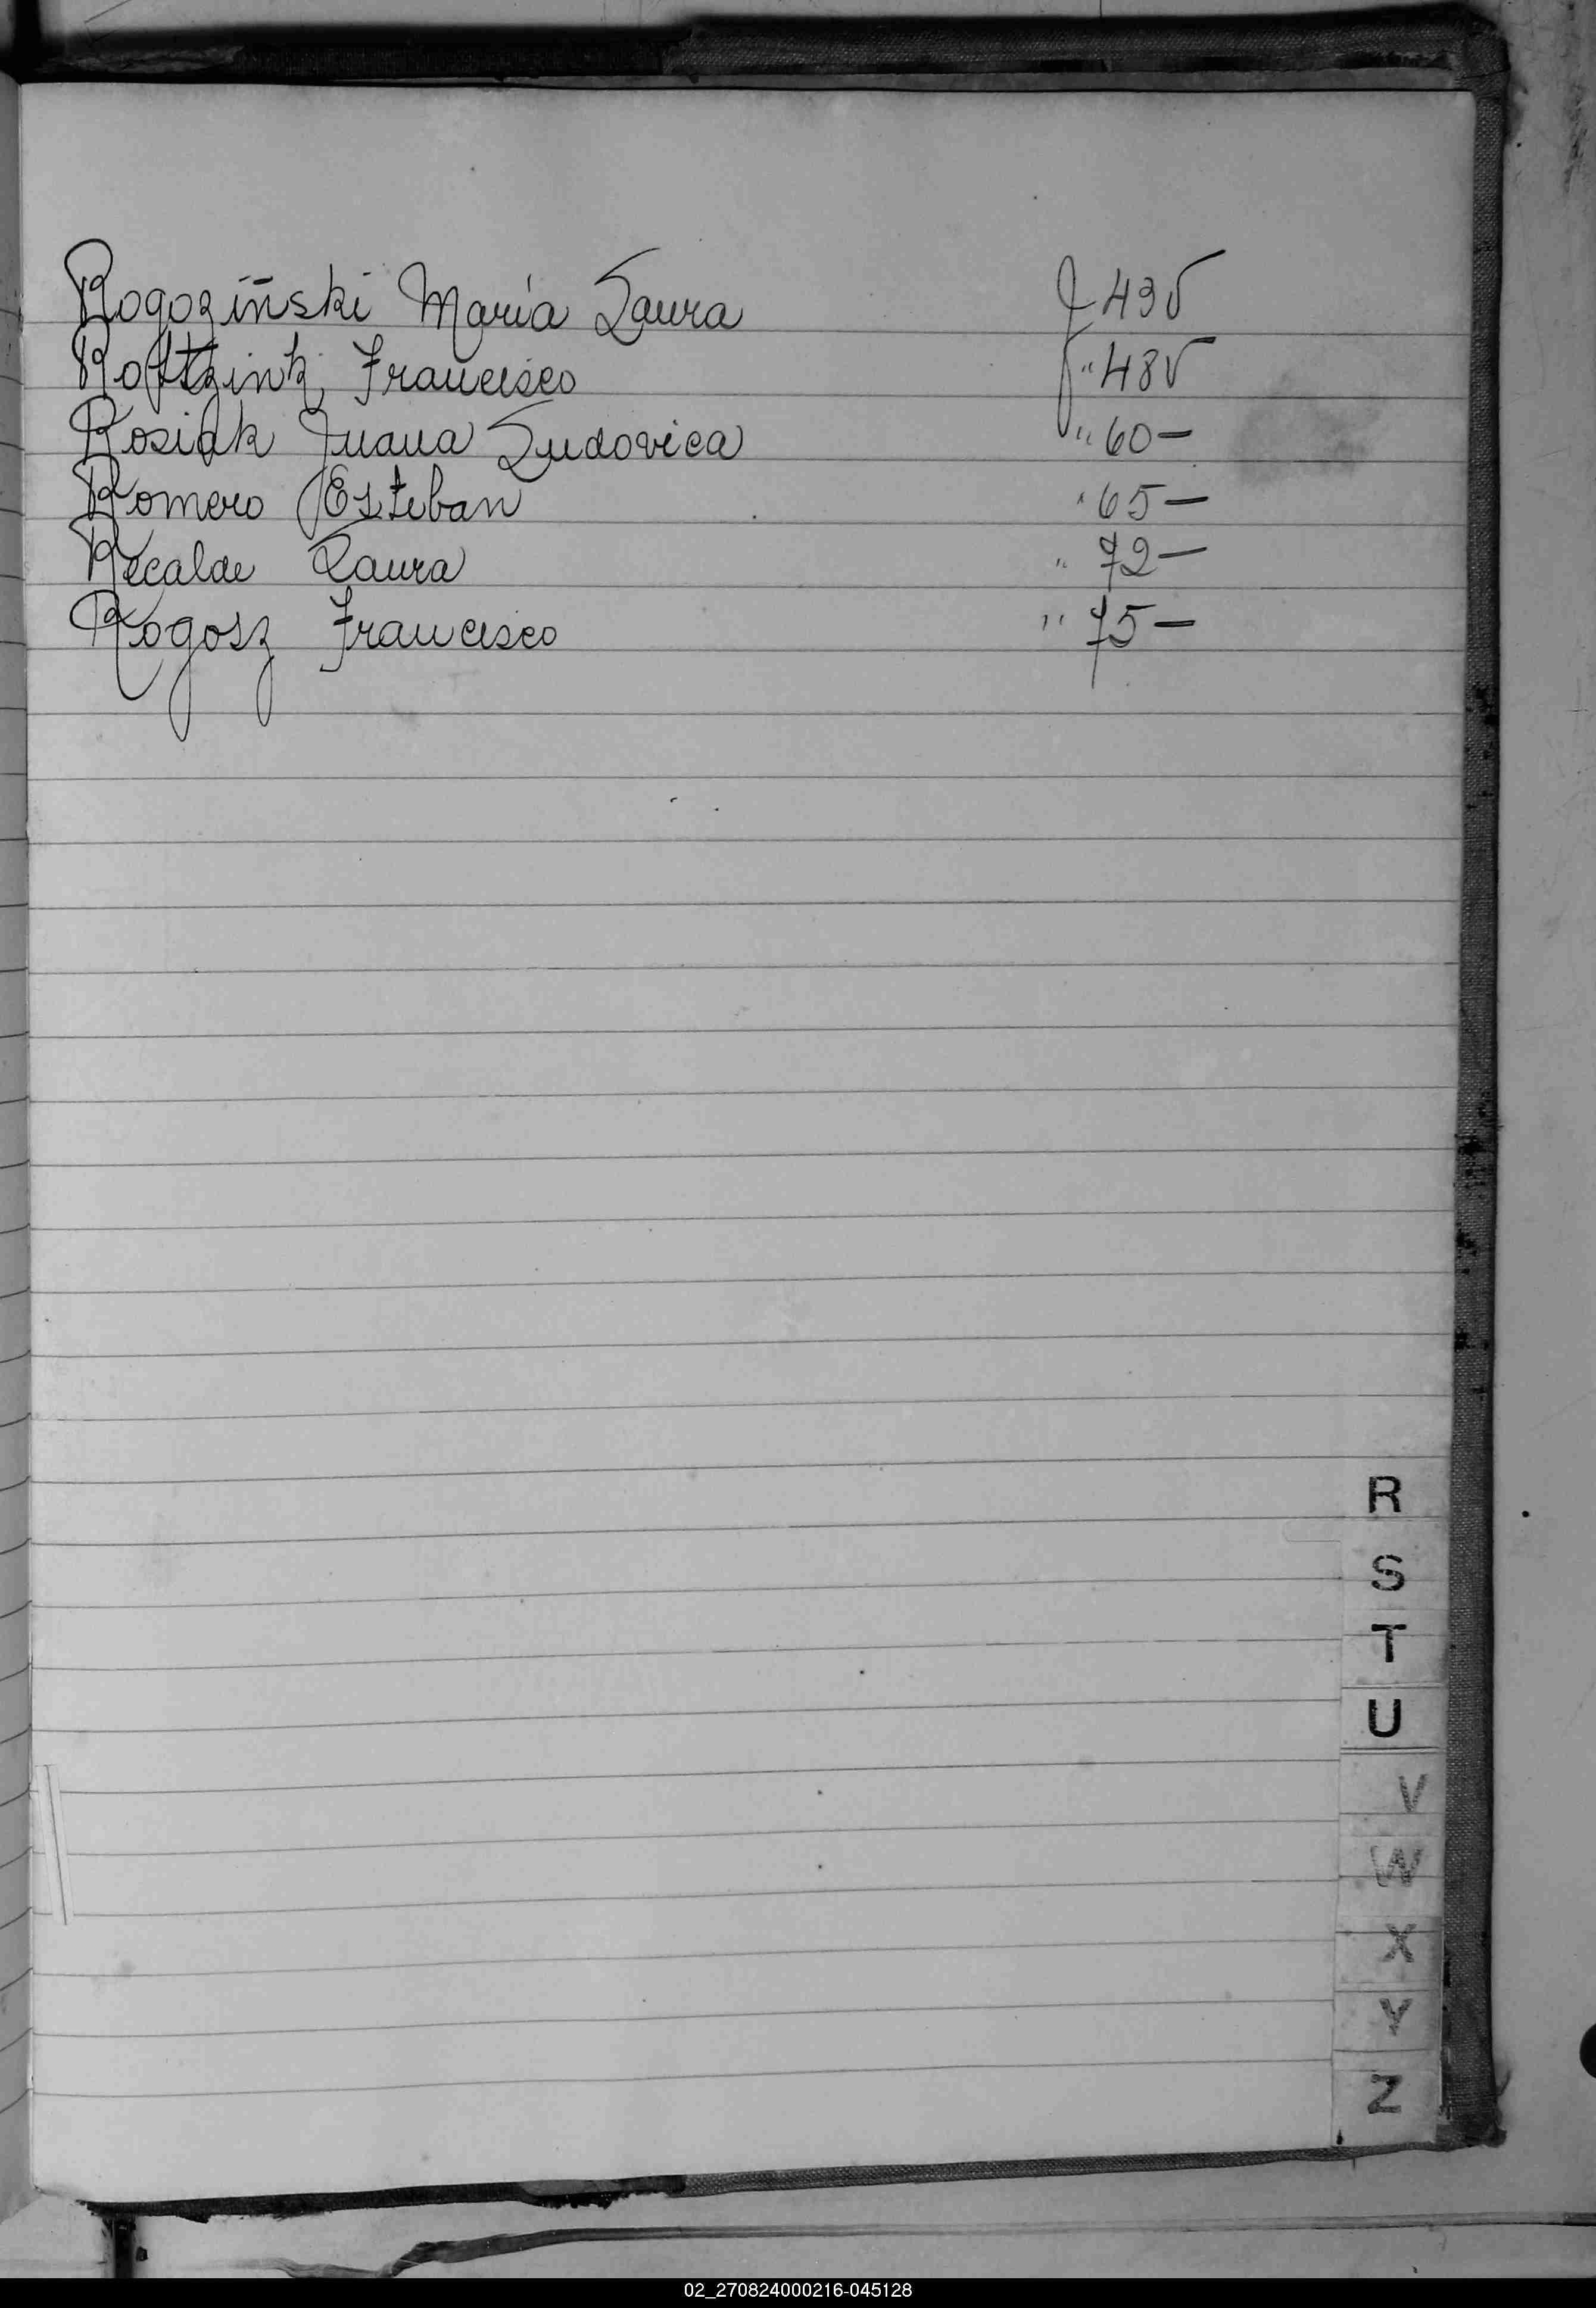 Rogoziñski María Laura f 43v
Francisco " 48v
Rosiak Juana Ludovica " 60-
Romero Esteban " 65-
Recalde Laura " 72-
Rogosz Francisco " 75-
R
S
T
U
V
W
X
Y
Z
02_270824000216-045128